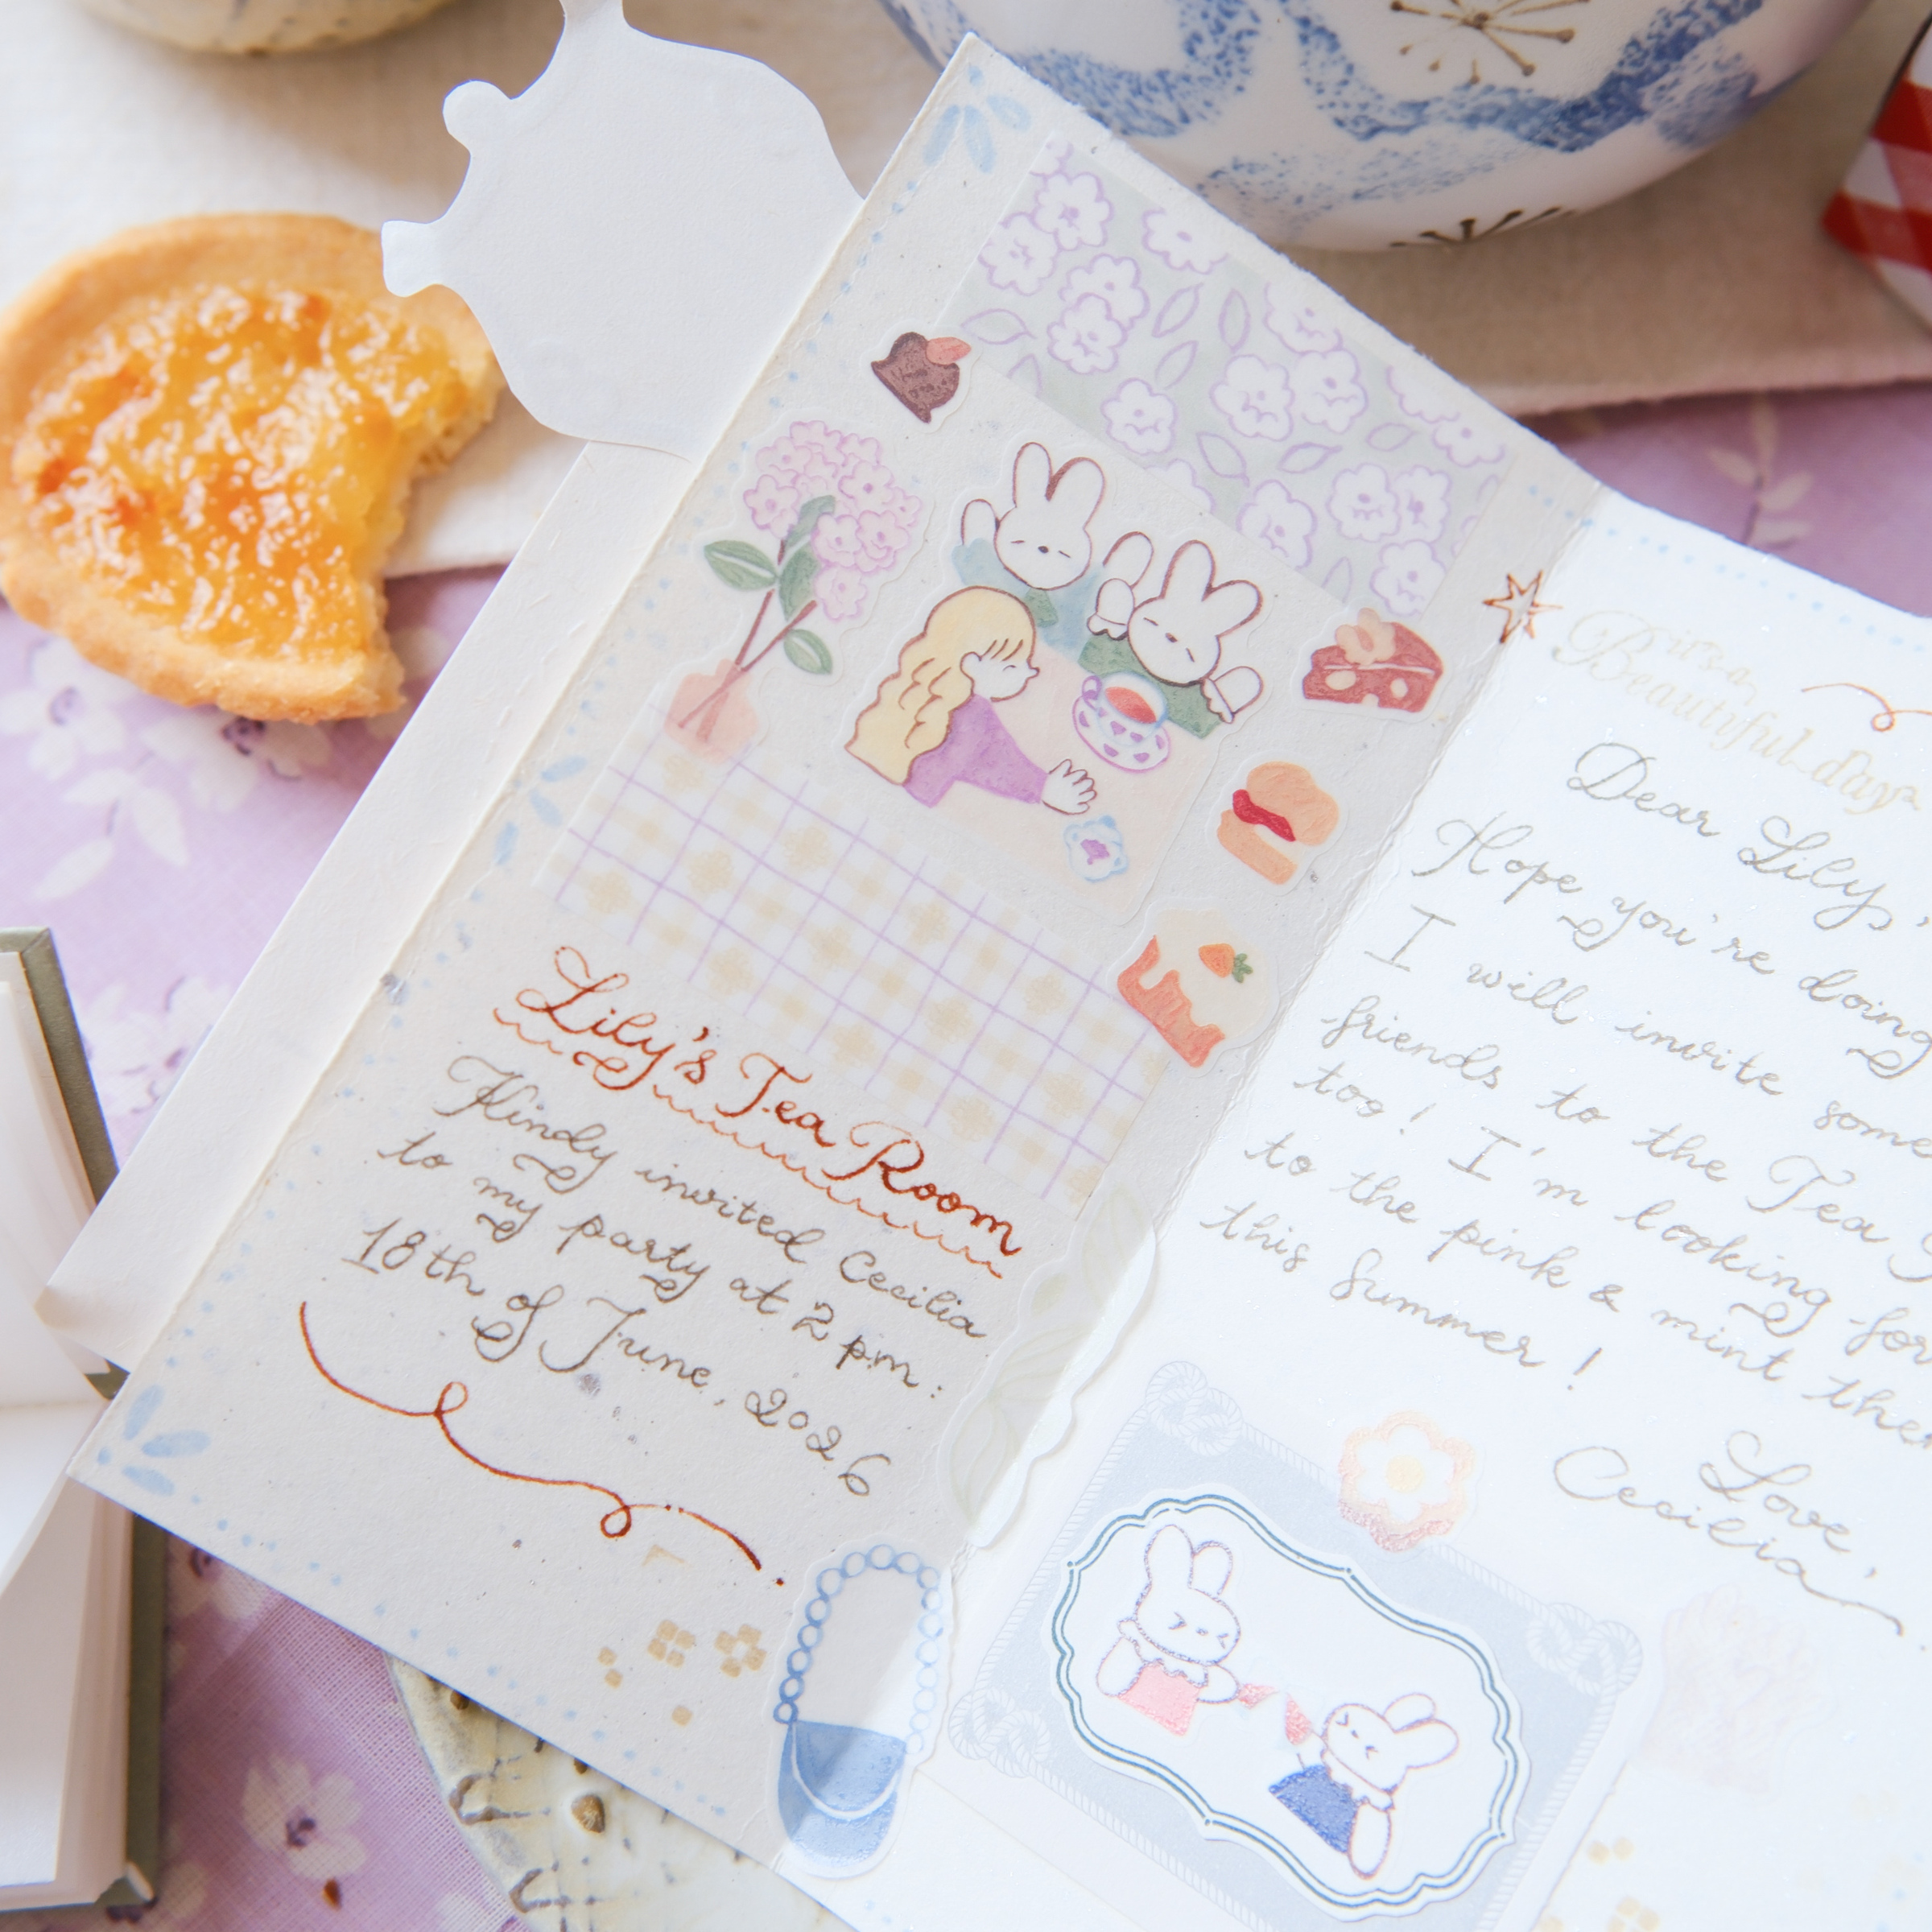 Lily's Tea Room
Kindly invited Cecilia
to my party at 2 pm :
18th of June, 2026
it's a
Beautiful day
Dear Lily,
Hope you're doing
I will invite some
friends to the Tea
too! I'm looking for
to the pink & mint
this Summer !
Love,
Cecilia